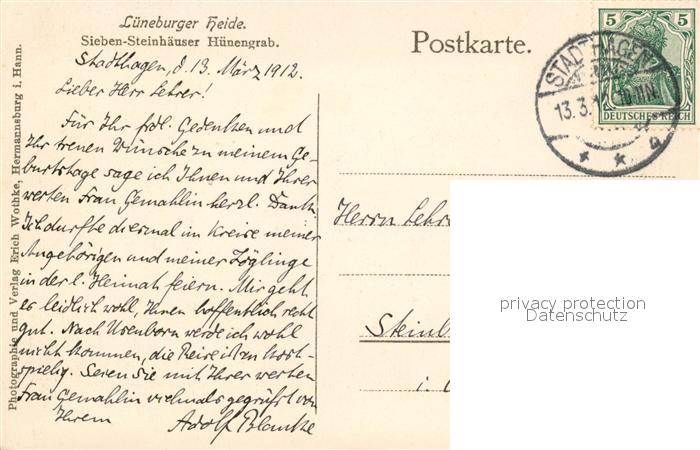 Lüneburger Heide.
Sieben-Steinhäuser Hünengrab.
Postkarte.
5 5
DEUTSCHES REICH
STADTHAGEN
13.3.1 10-11N.
Stadthagen, d. 13. März 1912.
Lieber Herr Lehrer!
Für Ihr frdl. Gedenken und
Ihr treuen Wünsche zu meinem Ge-
burtstage sage ich Ihnen und Ihrer
werten Frau Gemahlin herzl. Dank.
Ich durfte diesmal im Kreise meiner
Angehörigen und meiner Zöglinge
in der l. Heimat feiern. Mir geht
es leidlich wohl, Ihnen hoffentlich recht
gut. Nach Usenborn werde ich wohl
nicht kommen, die Reise ist zu kost-
spielig. Seien Sie mit Ihrer werten
Frau Gemahlin vielmals gegrüßt von
Ihrem Adolf
Herrn Lehr
Steinb
i.
Photographie und Verlag Erich Wothke, Hermannsburg i. Hann.
privacy protection
Datenschutz